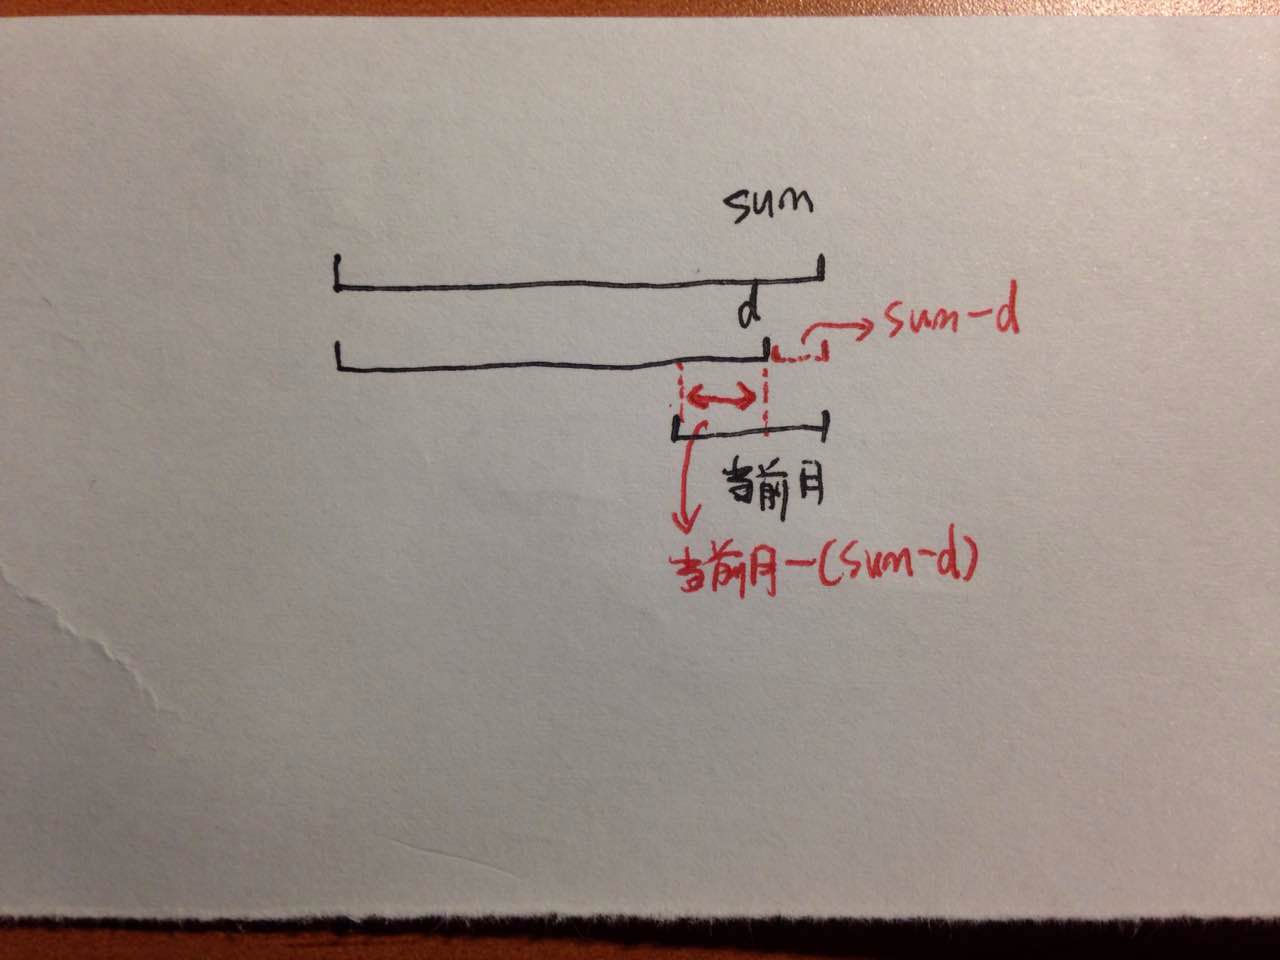 sum
d
sum-d
当前月
当前月-(sum-d)